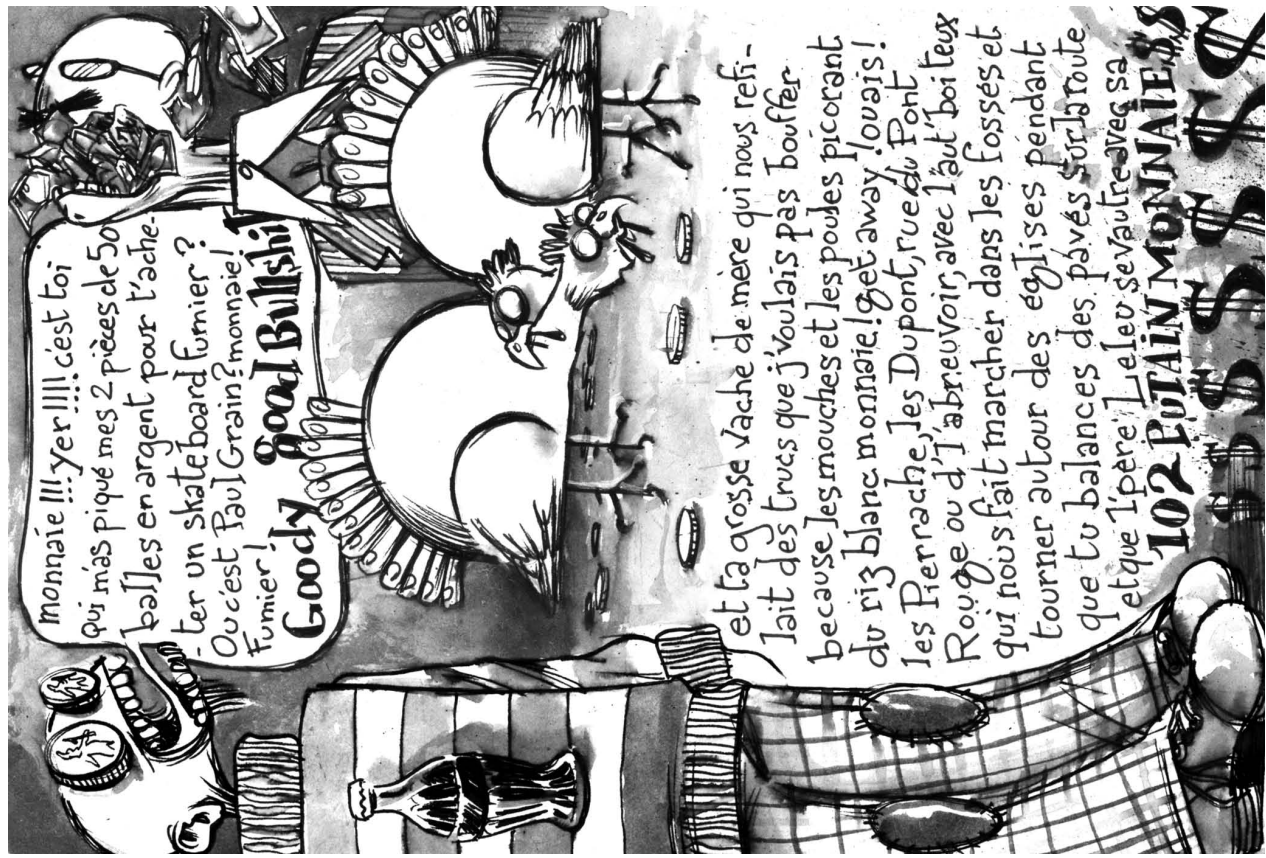 monnaie !!! yer !!!! c'est toi
qui m'as piqué mes 2 pièces de 50
balles en argent pour t'ache-
-ter un skateboard fumier ?
Ou c'est Paul Grain? monnaie!
Fumier !
Goody good Bullshit
et ta grosse vache de mère qui nous refi-
lait des trucs que j'voulais pas bouffer
because les mouches et les poules picorant
du riz blanc monnaie! get away! ouais!
les Pierrache, les Dupont, rue du Pont
Rouge ou d'l'abreuvoir, avec l'aut' boiteux
qui nous fait marcher dans les fossés et
tourner autour des églises pendant
que tu balances des pavés sur la route
et que l'père Leleu se vautre avec sa
102 PUTAIN MONNAIE $$
$ $ $ $ $ $ $ $